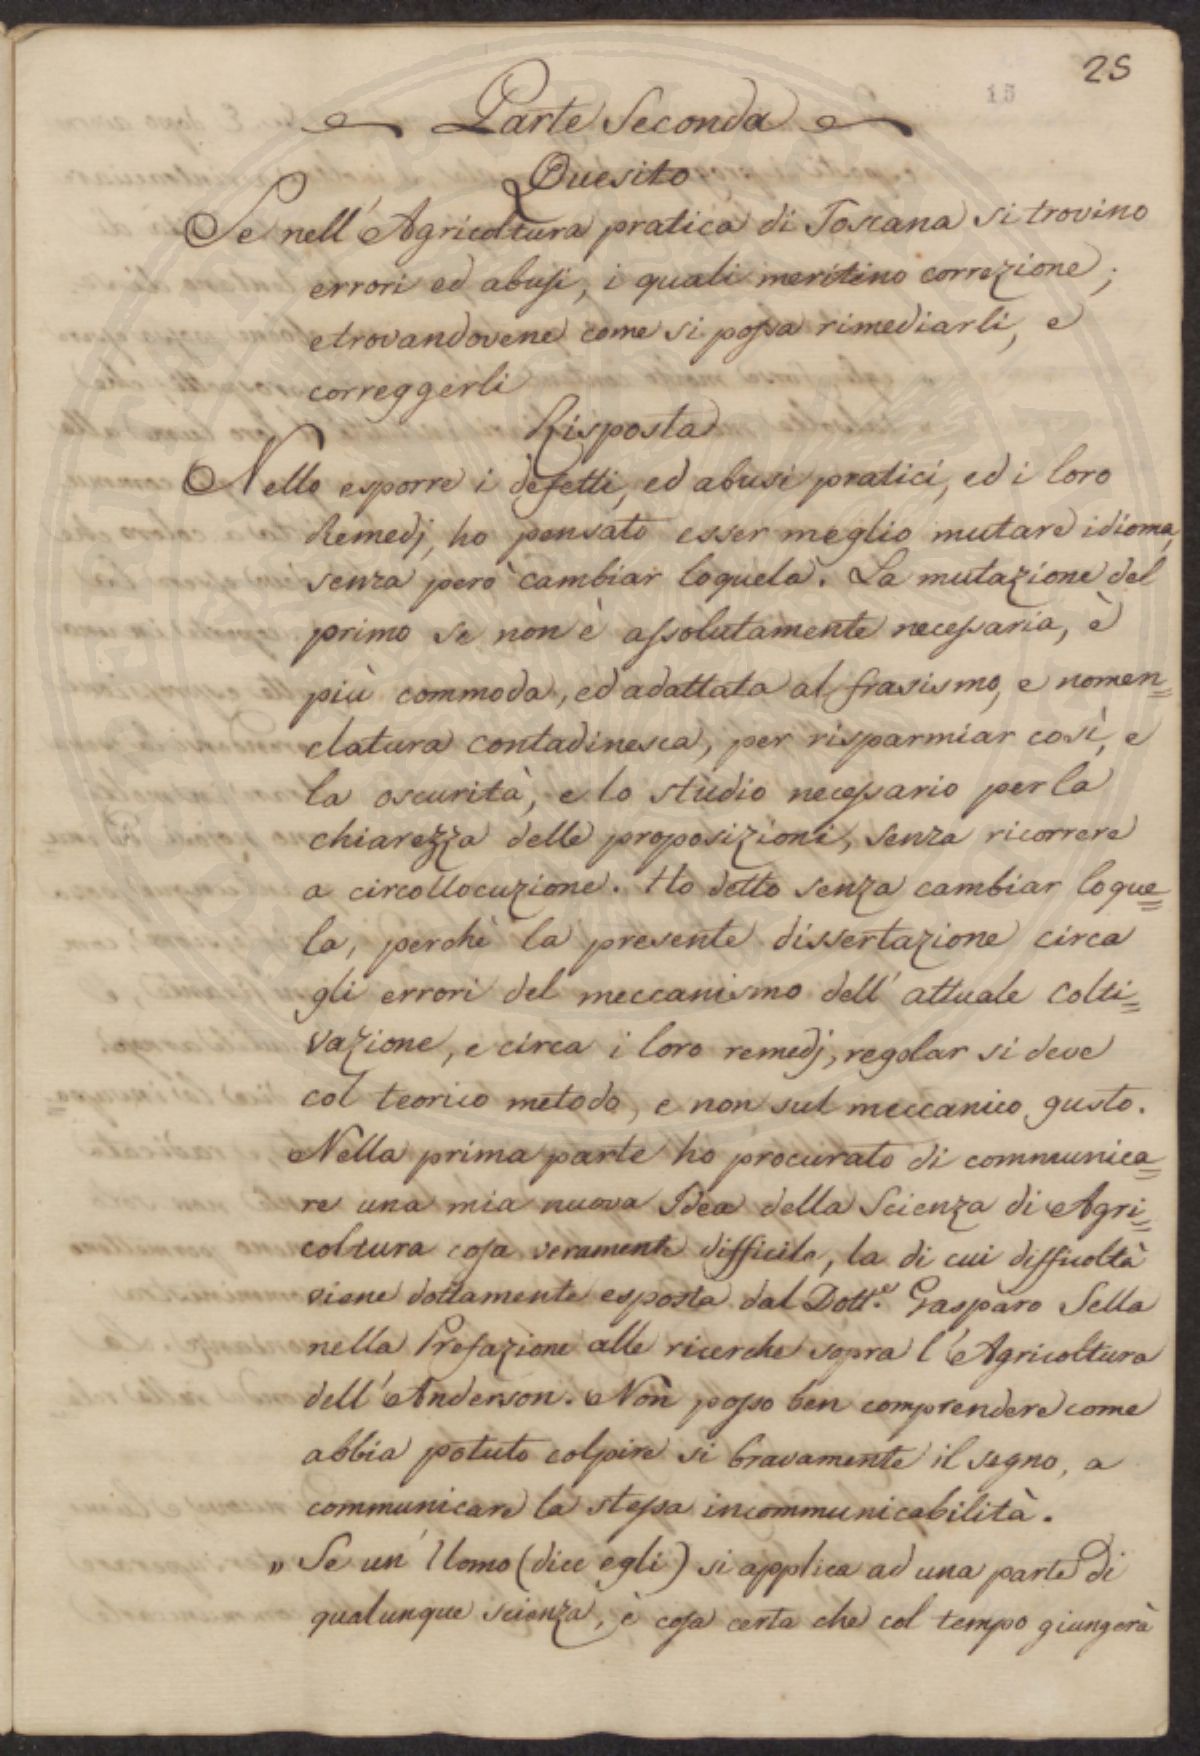 25
15
Parte Seconda
Quesito
Se nell' Agricoltura pratica di Toscana si trovino
errori ed abusi, i quali meritino correzione;
e trovandovene come si possa rimediarli, e
correggerli
Risposta
Nello esporre i defetti, ed abusi pratici, ed i loro
Remedj, ho pensato esser meglio mutare idioma,
senza però cambiar loquela. La mutazione del
primo se non è assolutamente necessaria, è
più commoda, ed adattata al frasismo, e nomen=
clatura contadinesca, per risparmiar così, e
la oscurità, e lo studio necessario per la
chiarezza delle proposizioni, senza ricorrere
a circollocuzione. Ho detto senza cambiar loque=
la, perchè la presente dissertazione circa
gli errori del meccanismo dell' attuale colti=
vazione, e circa i loro remedj, regolar si deve
col teorico metodo, e non sul meccanico gusto.
Nella prima parte ho procurato di communica=
re una mia nuova Idea della Scienza di Agri=
coltura cosa veramente difficile, la di cui difficoltà
viene dottamente esposta dal Dott.e Gasparo Sella
nella Prefazione alle ricerche sopra l'Agricoltura
dell' Anderson. Non posso ben comprendere come
abbia potuto colpire si bravamente il segno, a
communicare la stessa incommunicabilità.
„ Se un' Uomo (dice egli) si applica ad una parte di
qualunque scienza, è cosa certa che col tempo giungerà